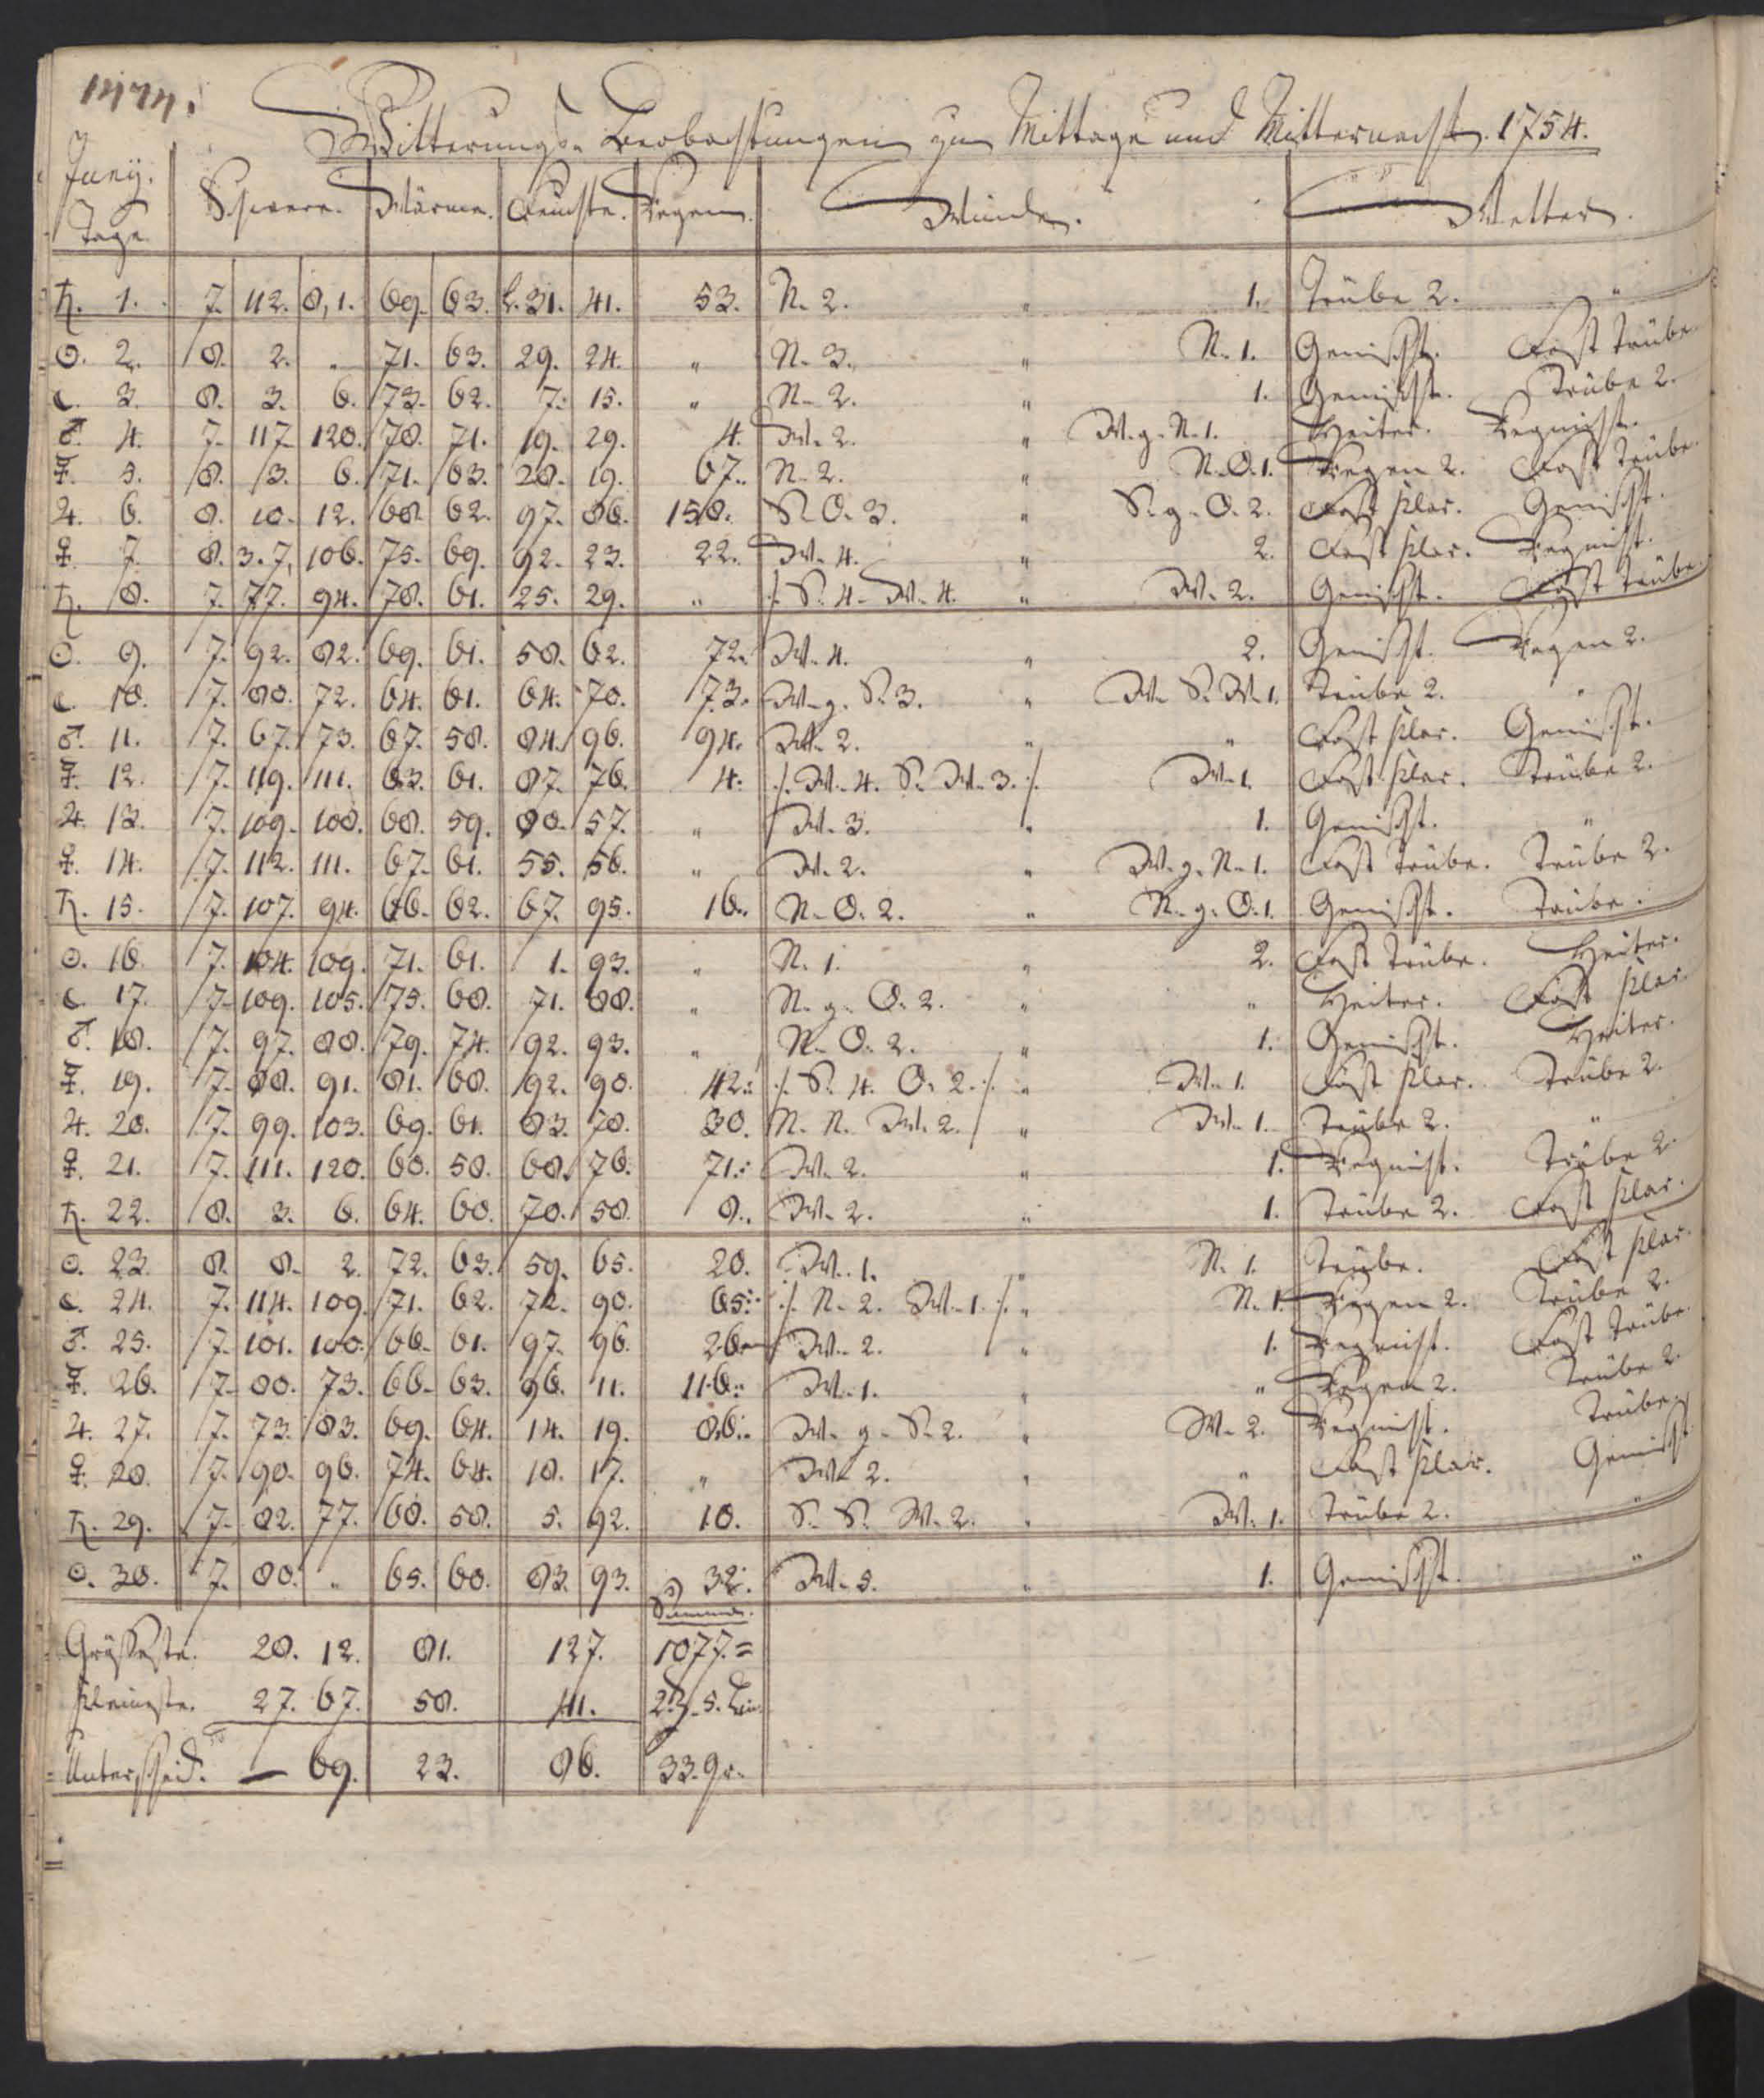 1474.
Witterungs-Beobachtungen zu Mittage und Mitternacht. 1754.
Junij. Tage. Schwere. Wärme. Feuchte. Regen. Winde. Wetter.
♄. 1. 7. 112. 8,1. 69. 63. L. 31. 41. 53. N. 2. " 1. Trübe 2. "
☉. 2. 8. 2. " 71. 63. 29. 24. " N. 3. " N. 1. Gemischt. Fast Trübe.
☾. 3. 8. 3. 6. 73. 62. 7. 15. " N. 2. " 1. Gemischt. Trübe 2.
♂. 4. 7. 117. 120. 78. 71. 19. 29. 4. W. 2. " W. g. N. 1. Heiter. Regnicht.
☿. 5. 8. 3. 6. 71. 63. 28. 19. 67. N. 2. " N. O. 1. Regen 2. Fast Trübe.
♃. 6. 8. 10. 12. 68. 62. 97. 86. 158. S. O. 3. " S. g. O. 2. Fast klar. Gemischt.
♀. 7. 8. 3. 7, 106. 75. 69. 92. 23. 22. W. 4. " 2. Fast klar. Regnicht.
♄. 8. 7. 77. 94. 78. 61. 25. 29. " ⁒ S. 4. W. 4. " W. 2. Gemischt. Fast Trübe.
☉. 9. 7. 92. 82. 69. 61. 58. 62. 72. W. 4. " 2. Gemischt. Regen 2.
☾. 10. 7. 80. 72. 64. 61. 64. 70. 73. W. g. S. 3. " W. S. W. 1. Trübe 2. "
♂. 11. 7. 67. 73. 67. 58. 84. 96. 94. W. 2. " " Fast klar. Gemischt.
☿. 12. 7. 119. 111. 63. 61. 87. 76. 4. ⁒ W. 4. S. W. 3. ⁒ W. 1. Fast klar. Trübe 2.
♃. 13. 7. 109. 108. 68. 59. 80. 57. " W. 3. " 1. Gemischt. "
♀. 14. 7. 112. 111. 67. 61. 55. 56. " W. 2. " W. g. N. 1. Fast Trübe. Trübe 2.
♄. 15. 7. 107. 94. 66. 62. 67. 95. 16. N. O. 2. " N. g. O. 1. Gemischt. Trübe.
☉. 16. 7. 104. 109. 71. 61. 1. 93. " N. 1. " 2. Fast Trübe. Heiter.
☾. 17. 7. 109. 105. 75. 68. 71. 88. " N. g. O. 2. " " Heiter. Fast klar.
♂. 18. 7. 97. 88. 79. 74. 92. 93. " N. O. 2. " 1. Gemischt. Heiter.
☿. 19. 7. 88. 91. 81. 68. 92. 90. 42. ⁒ S. 4. O. 2. ⁒ " W. 1. Fast klar. Trübe 2.
♃. 20. 7. 99. 103. 69. 61. 83. 78. 30. N. N. W. 2. " W. 1. Trübe 2. "
♀. 21. 7. 111. 120. 60. 58. 68. 76. 71. W. 2. " 1. Regnicht. Trübe 2.
♄. 22. 8. 3. 6. 64. 60. 70. 58. 8. W. 2. " 1. Trübe 2. Fast klar.
☉. 23. 8. 8. 2. 72. 63. 59. 65. 20. W. 1. " N. 1. Trübe. Fast klar.
☾. 24. 7. 114. 109. 71. 62. 72. 90. 65. ⁒ N. 2. W. 1. ⁒ " N. 1. Regen 2. Trübe 2.
♂. 25. 7. 101. 100. 66. 61. 97. 96. 26. W. 2. " 1. Regnicht. Fast Trübe.
☿. 26. 7. 80. 73. 66. 63. 96. 11. 116. W. 1. " " Regen 2. Trübe 2.
♃. 27. 7. 73. 83. 69. 64. 14. 19. 86. W. g. S. 2. " W. 2. Regnicht. Trübe.
♀. 28. 7. 90. 96. 74. 64. 18. 17. " W. 2. " " Fast klar. Gemischt.
♄. 29. 7. 82. 77. 68. 58. 5. 92. 10. S. S. W. 2. " W. 1. Trübe 2. "
☉. 30. 7. 80. " 65. 60. 83. 93. 32. W. 5. " 1. Gemischt. "
Summa.
Grösseste. 28. 12. 81. 127. 1077. =
Kleinste. 27. 67. 58. 41. 2. 5. Lin.
Unterscheid. — 69. 23. 86. 33. gr.